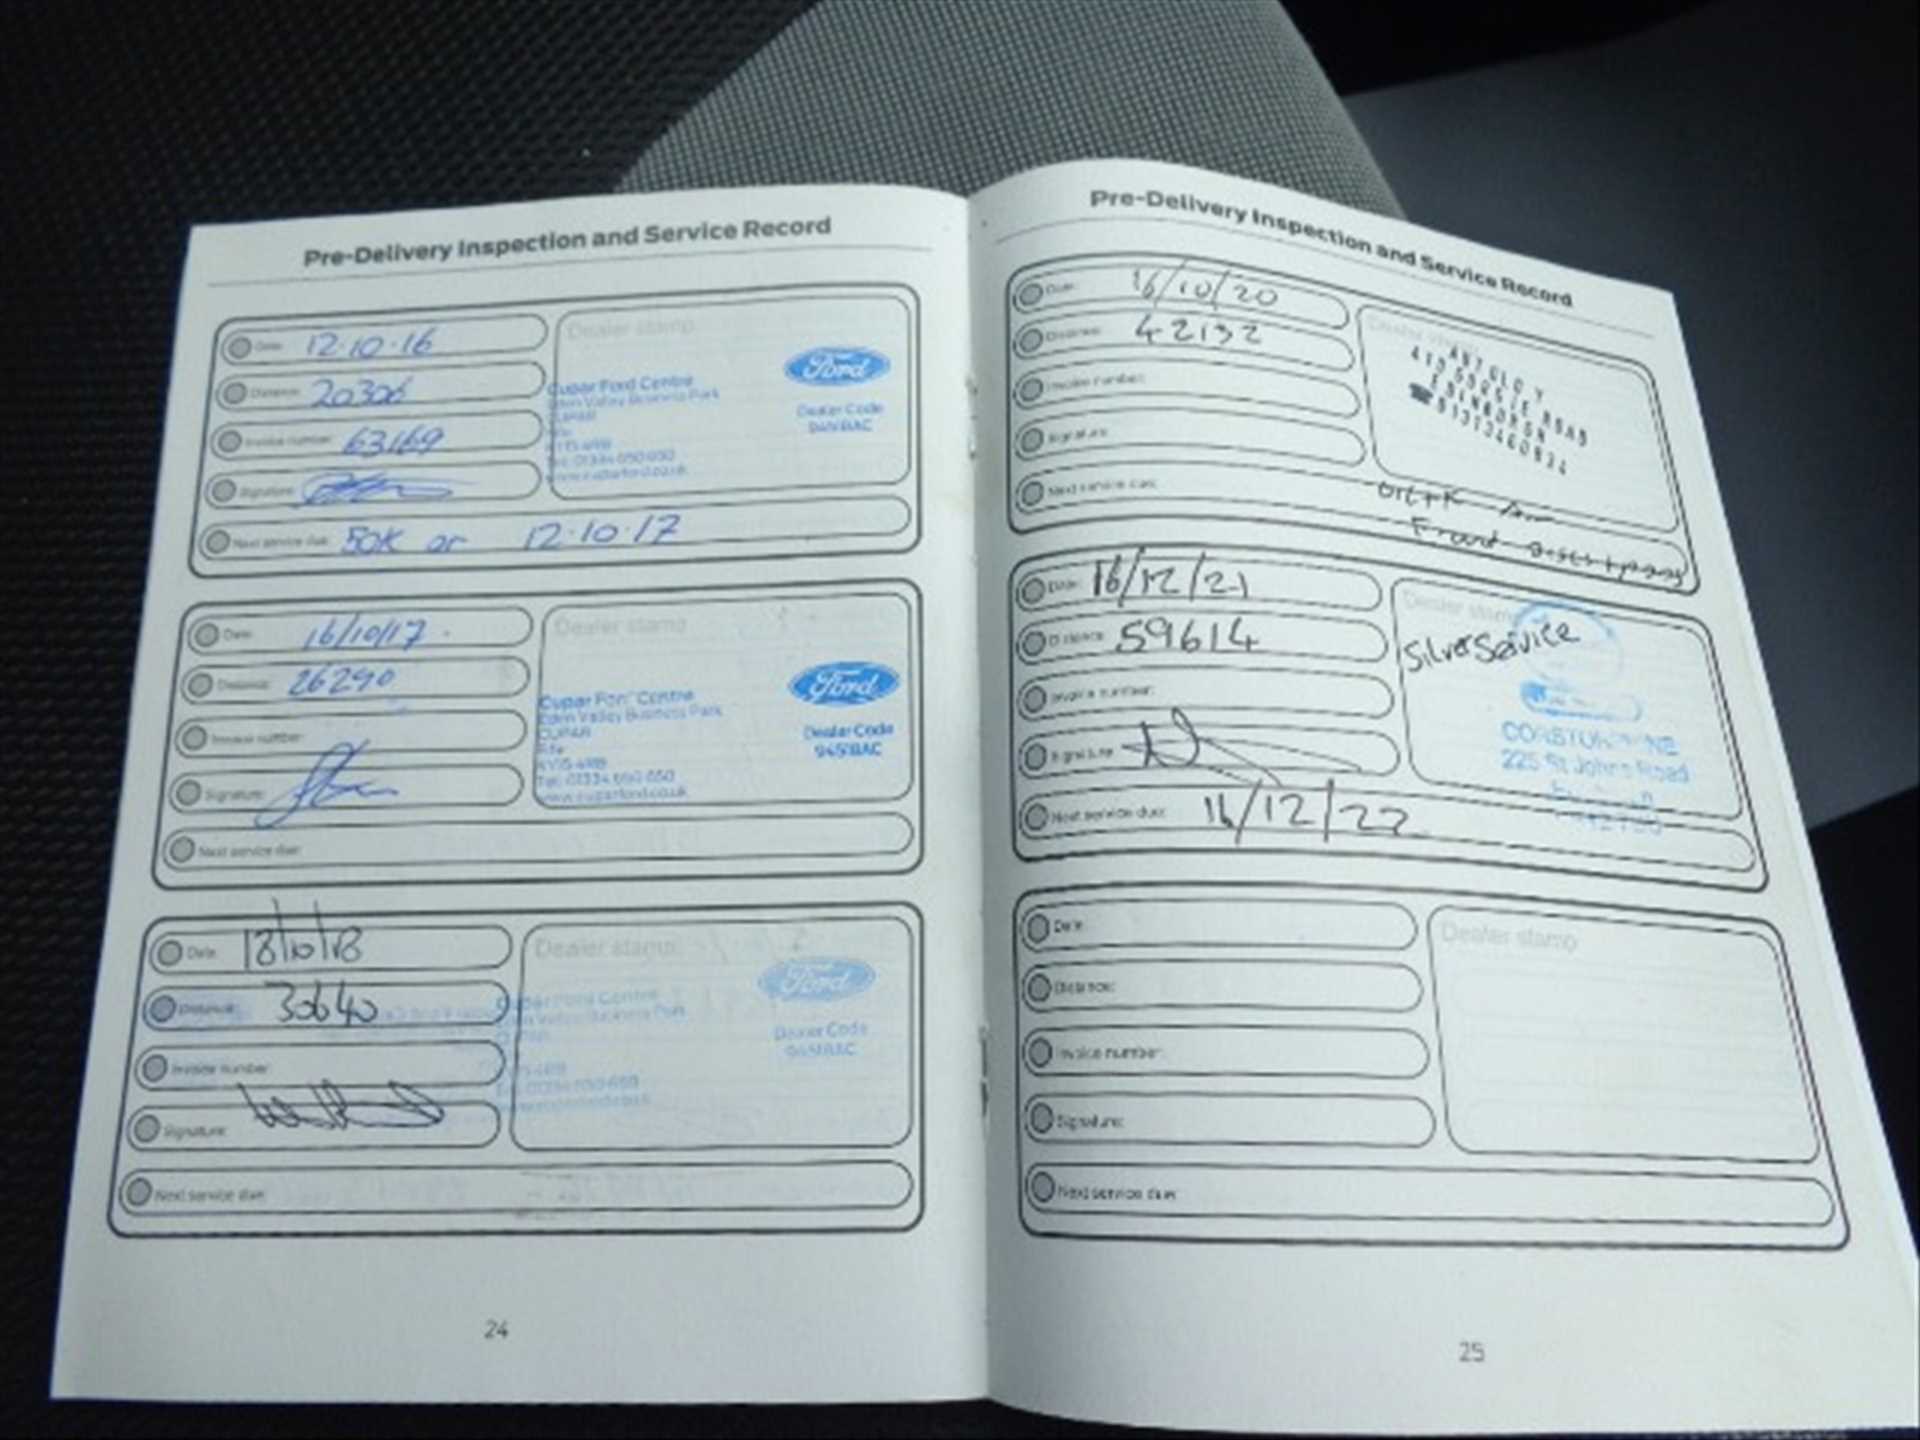 Pre-Delivery Inspection and Service Record
Date: 12.10.16
Distance: 20306
Invoice number: 63169
Signature:
Next service due: 50K or 12.10.17
Dealer stamp
Ford
Cupar Ford Centre
Eden Valley Business Park
CUPAR
Fife
KY15 4RB
Tel: 01334 650 650
www.cuparford.co.uk
Dealer Code
94518AC
Date: 16/10/17.
Distance: 26290
Invoice number:
Signature:
Next service due:
Dealer stamp
Ford
Cupar Ford Centre
Eden Valley Business Park
CUPAR
Fife
KY15 4RB
Tel: 01334 650 650
www.cuparford.co.uk
Dealer Code
94518AC
Date: 18/10/18
Distance: 30640
Invoice number:
Signature:
Next service due:
Dealer stamp:
Ford
Cupar Ford Centre
Eden Valley Business Park
CUPAR
KY15 4RB
Tel: 01334 650 650
www.cuparford.co.uk
Dealer Code
94518AC
24
Pre-Delivery Inspection and Service Record
Date: 16/10/20
Distance: 42132
Invoice number:
Signature:
Next service due:
Dealer stamp
419 GORGIE ROAD
EDINBURGH
☎01313460834
Front discs + pads
Date: 16/12/21
Distance: 59614
Invoice number:
Signature:
Next service due: 16/12/22
Dealer stamp
Silver Service
CORSTORPHINE
225 St Johns Road
Date:
Distance:
Invoice number:
Signature:
Next service due:
Dealer stamp
25